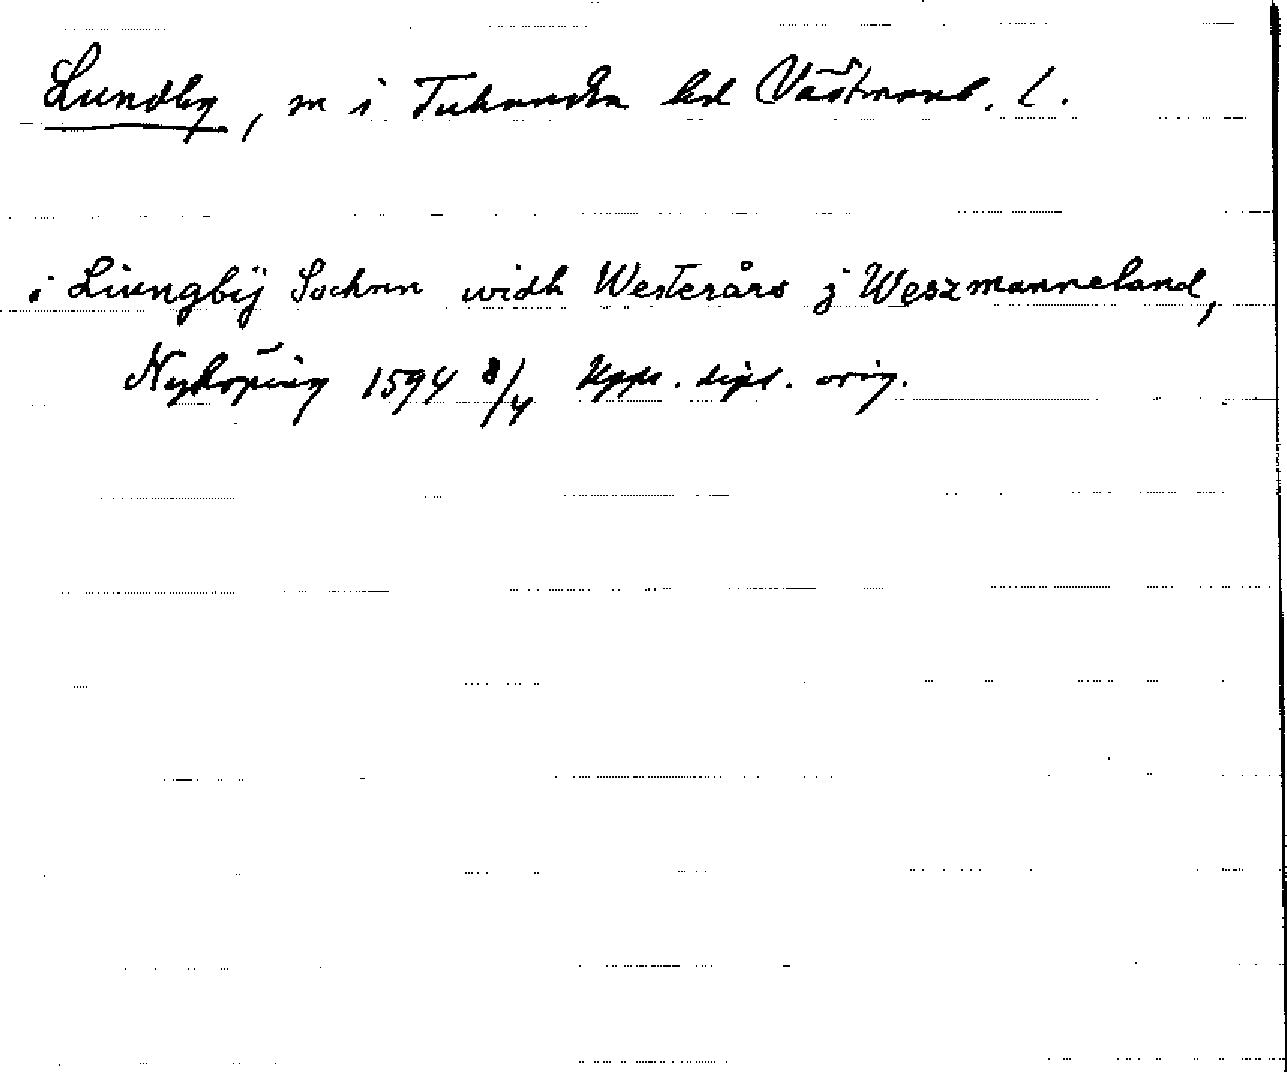 Lundby, sn i Tuhundra hd Västmanl. l.
i Liungbÿ Sochnn widh Westerårs j Weszmanneland,
Nyköping 1594 8/4 Upps. dipl. orig.